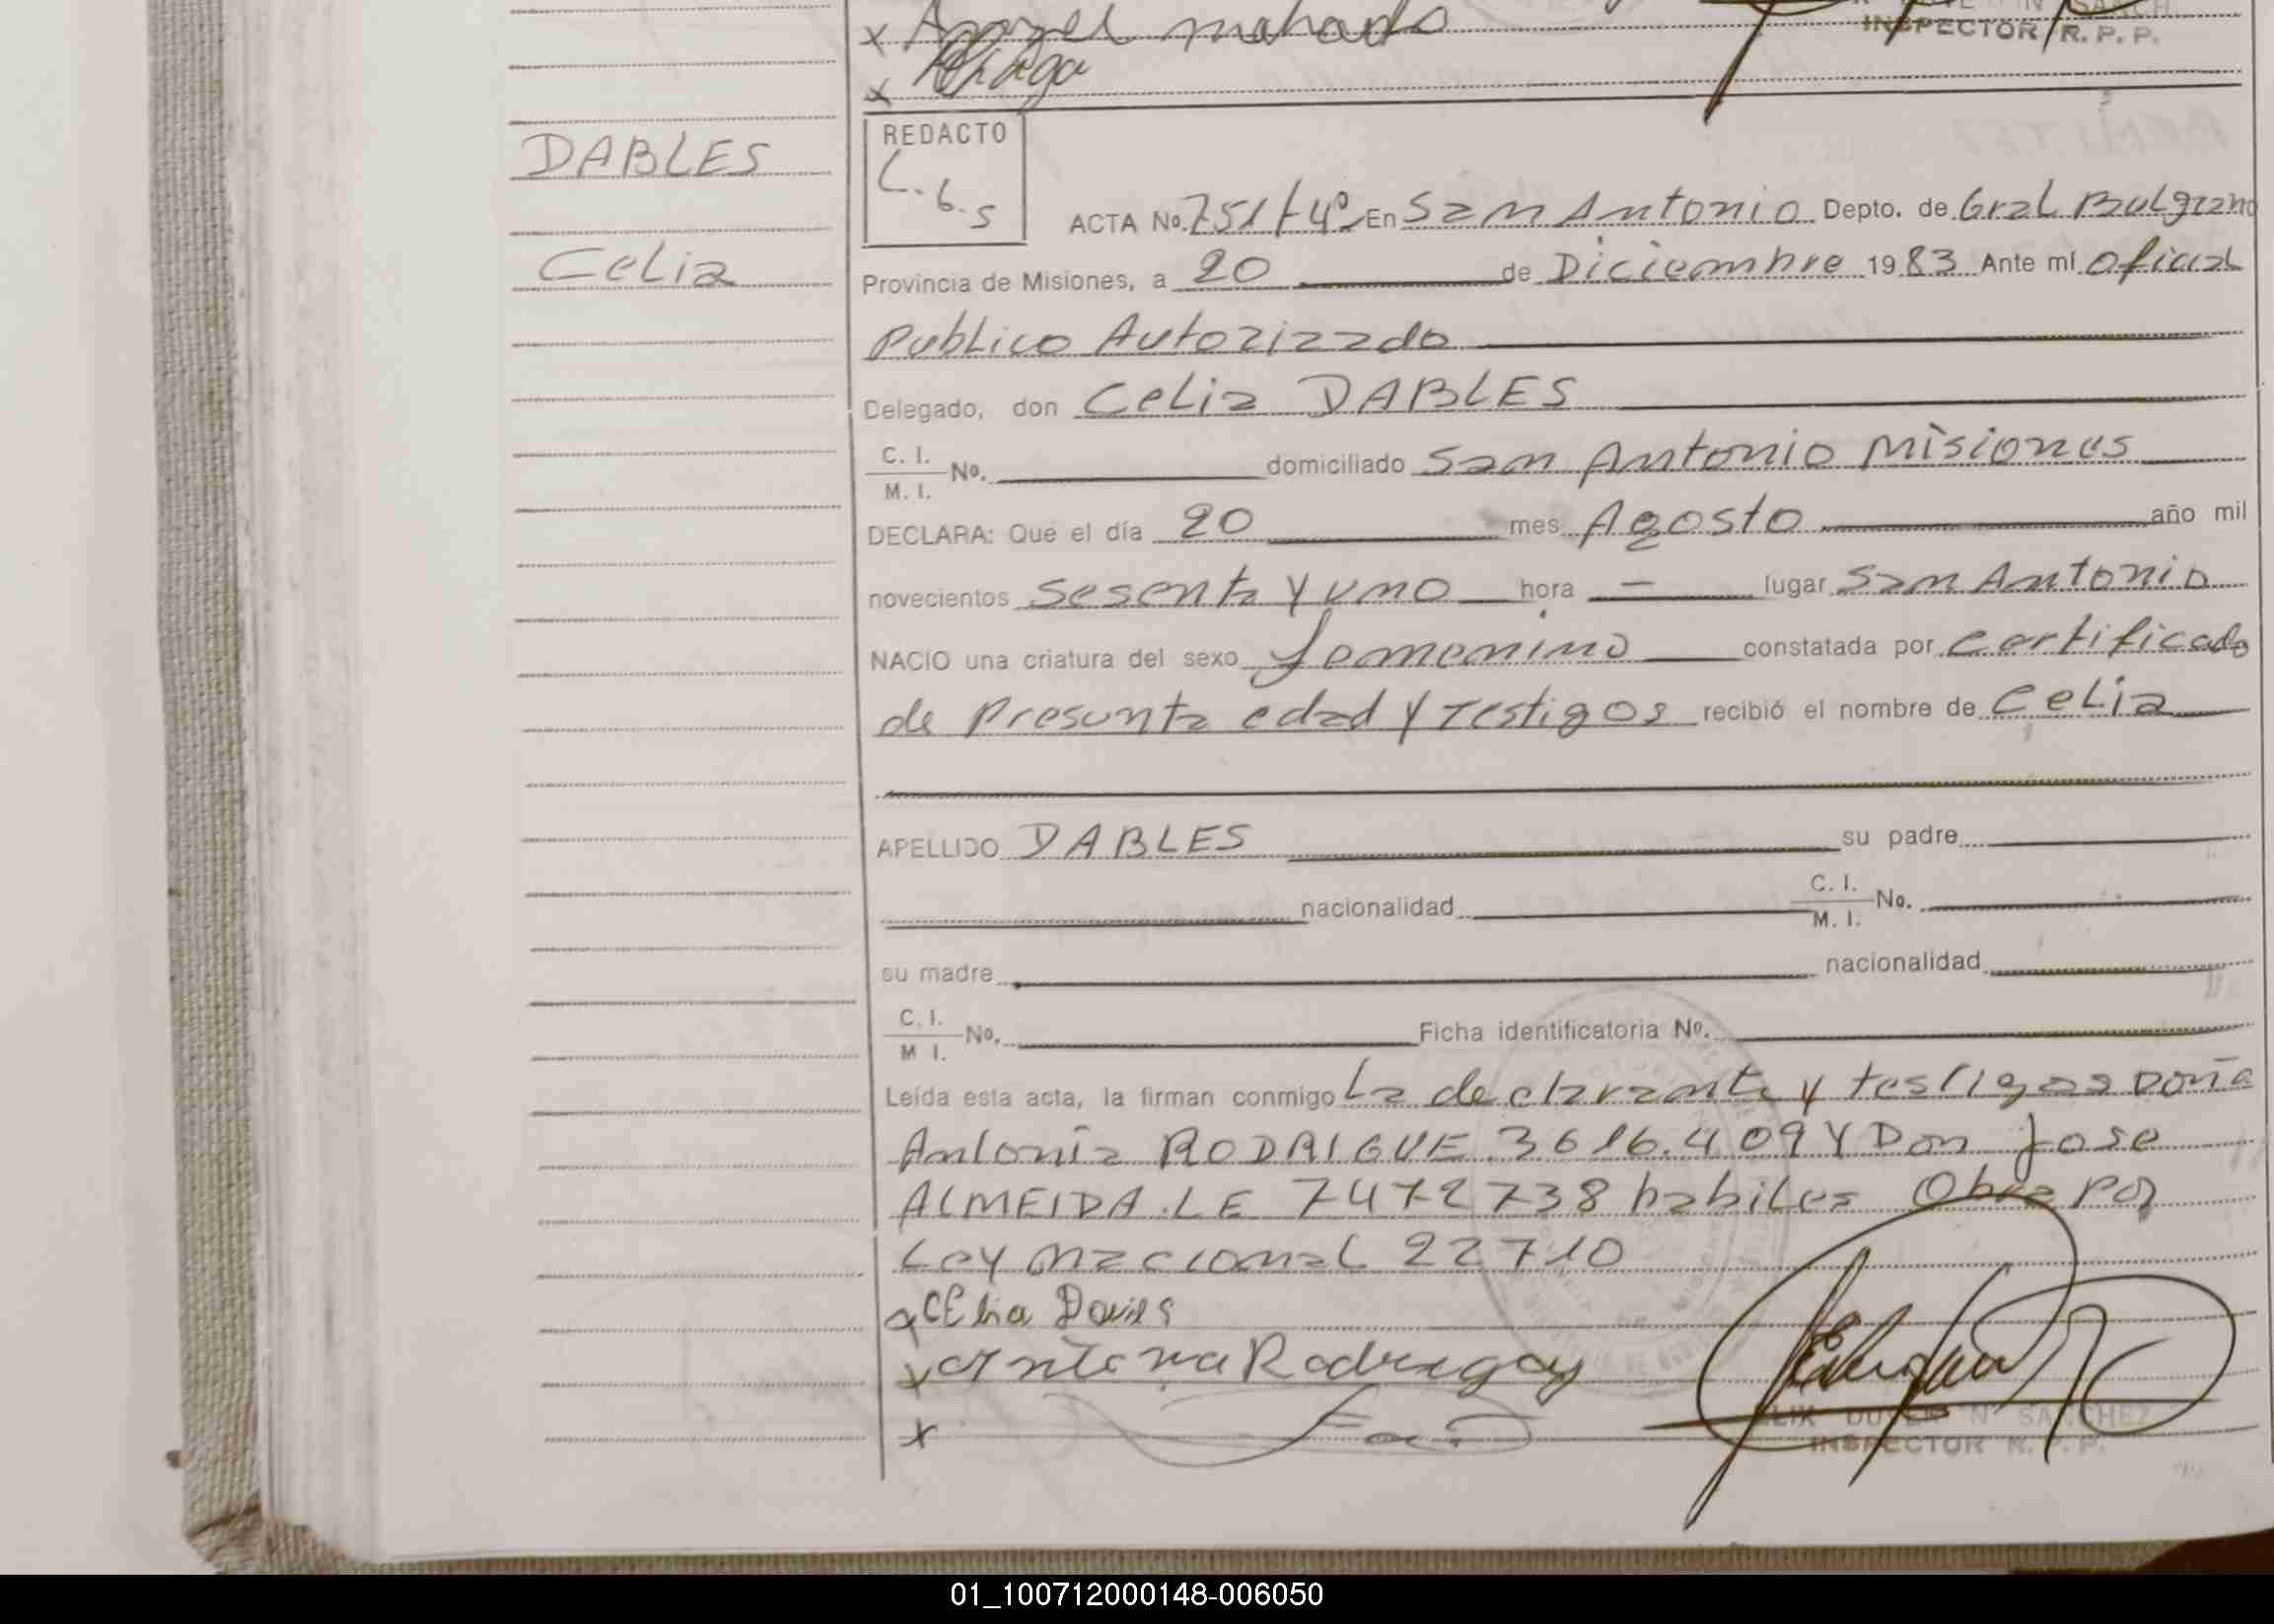 x Angel machado
INSPECTOR R. P. P.
x
REDACTO
L. G. S
DABLES
Celia
ACTA No. 751 T 4º En San Antonio Depto. de Gral Belgrano
Provincia de Misiones, a 20 de Diciembre 1983 Ante mí Oficial
Publico Autorizado
Delegado, don Celia DABLES
C. I.
M. I. No. domiciliado San Antonio Misiones
DECLARA: Que el día 20 mes Agosto año mil
novecientos Sesenta y uno hora — lugar San Antonio
NACIO una criatura del sexo femenino constatada por certificado
de Presunta edad y testigos recibió el nombre de Celia
APELLIDO DABLES su padre
nacionalidad C. I.
M. I. No.
su madre nacionalidad
C. I.
M I. No. Ficha identificatoria No.
Leída esta acta, la firman conmigo La declarante y testigos Doña
Antonia RODRIGUE 3616.409 Y Don Jose
ALMEIDA. LE 7472738 habiles Obra por
Ley nacional 22710
x CElia Daviles
x Antonia Rodrigay
x
SANCHEZ
INSPECTOR R. P. P.
01_100712000148-006050